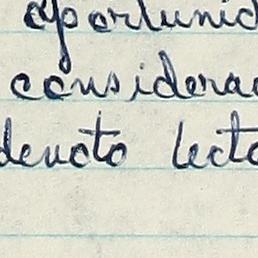 oportunid
considerac
devoto lecto